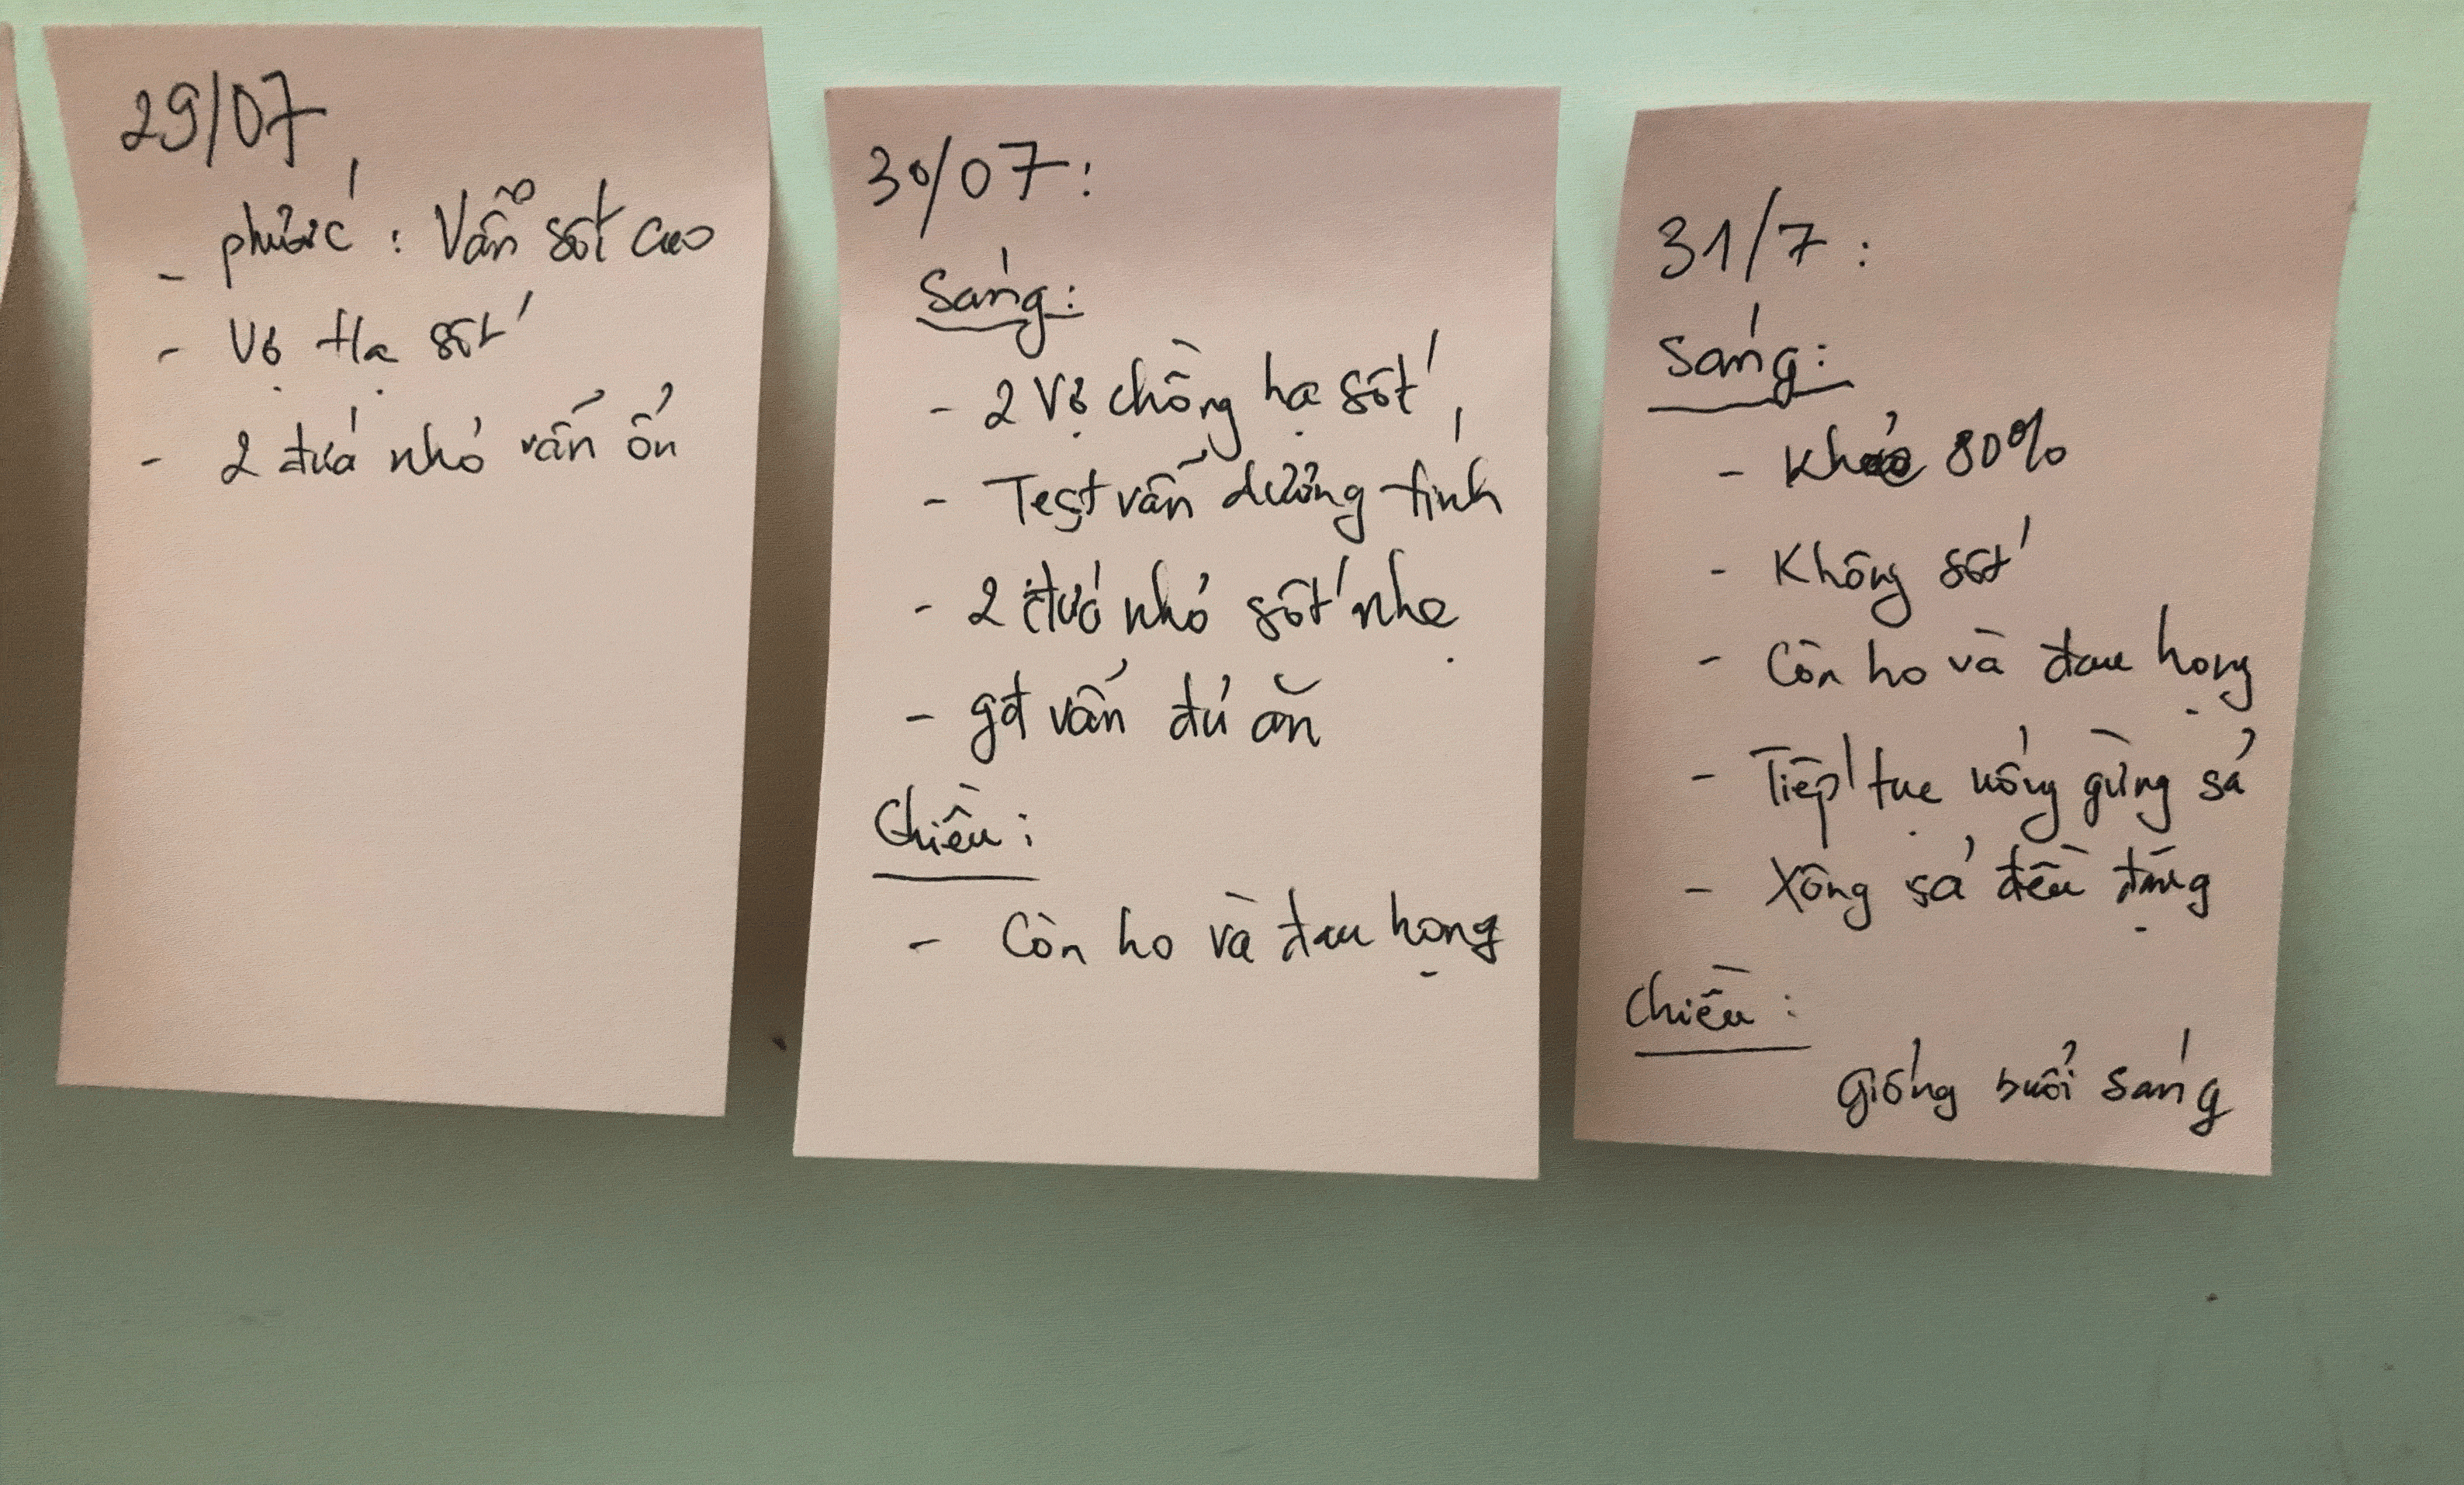 29/07
- Phước : Vẫn sốt cao
- Vợ Hạ sốt
- 2 đứa nhỏ vẫn ổn
30/07:
Sáng:
- 2 Vợ chồng hạ sốt
- Test vẫn dương tính
- 2 đứa nhỏ sốt nhẹ
- gđ vẫn đủ ăn
Chiều:
- Còn ho và đau họng
31/7:
Sáng:
- Khỏe 80%
- Không sốt
- Còn ho và đau họng
- Tiếp tục uống gừng sả
- Xông sả đều đặng
Chiều:
Giống buổi sáng